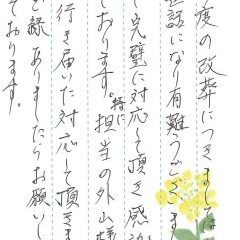 度の改葬につきましては
世話になり有難うございま
て完璧に対応して頂き感謝
ております。特に担当の外山様
行き届いた対応して頂きま
ご縁ありましたらお願いし
ております。